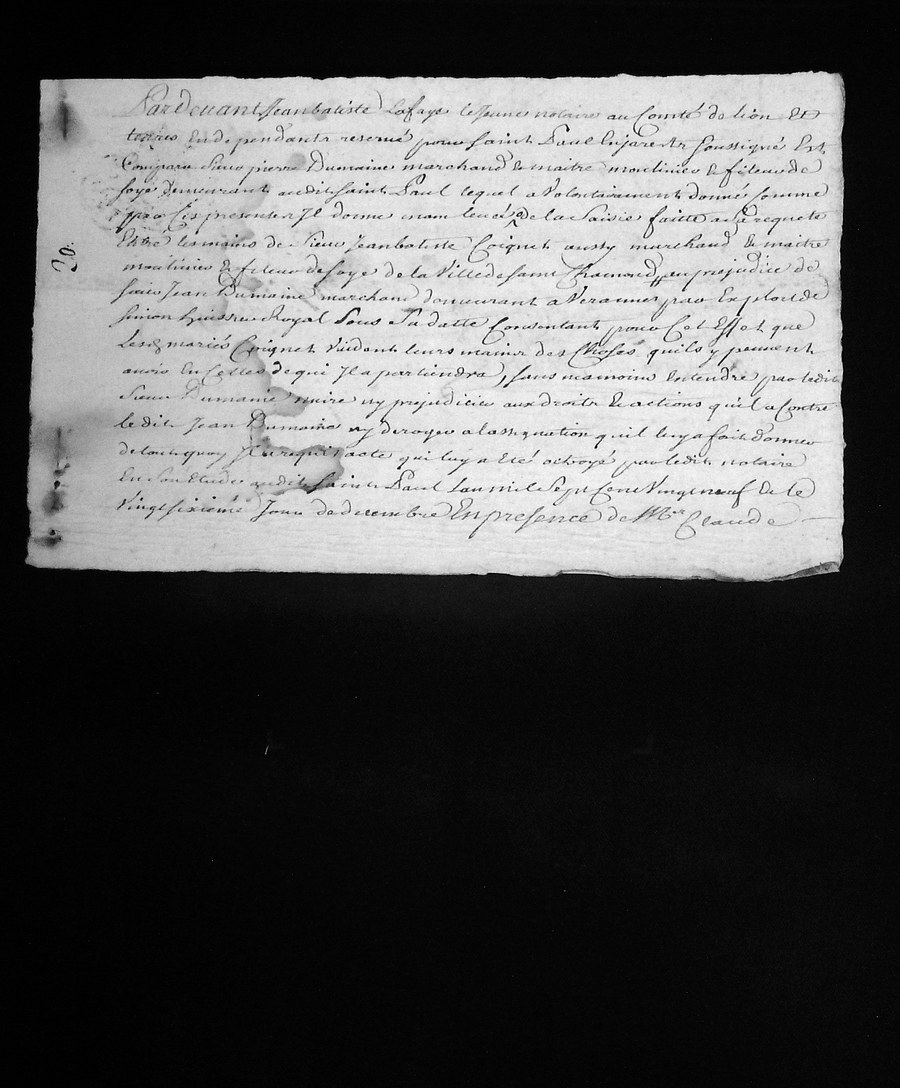 Pardevant Jean batiste Lafaye le Jeune notaire au Comté de lion Et
terres En dependants reservé pour saint Paul Enjarest soussigné Est
Comparu Sieur pierre Dumaine marchand & maitre moulinier & fileur de
soye demeurant audit saint Paul lequel a Volontairement donné Comme
par Ces presentes Il donne main levée de la Saisie faitte a sa requete
Entre les mains de Sieur Jean batiste Coignet aussy marchand & maitre
moulinier & fileur de soye de la Ville de saint Chamond, au prejudice de
sieur Jean Dumaine marchand demeurant a Veranne par Exploit de
Simon huissier Royal Sous Sa datte Consentant pour Cet Effet que
Lesdits mariés Coignet Vuident leurs mains des Choses qu'ils y peuvent
avoir En Celles de qui Il apartiendra, sans neamoins Entendre par ledit
Sieur Dumaine nuire ny prejudicier aux droits & actions qu'il a Contre
le dit Jean Dumaine ny deroger a l'assignation qu'il luy a fait donner
de tout quoy Il a requis acte qui luy a Eté octroyé par ledit notaire
En son Etude audit Saint Paul L'an mil Sept Cent Vingt neuf & le
Vingt sixième Jour de decembre En presence de Mr Claude
20.